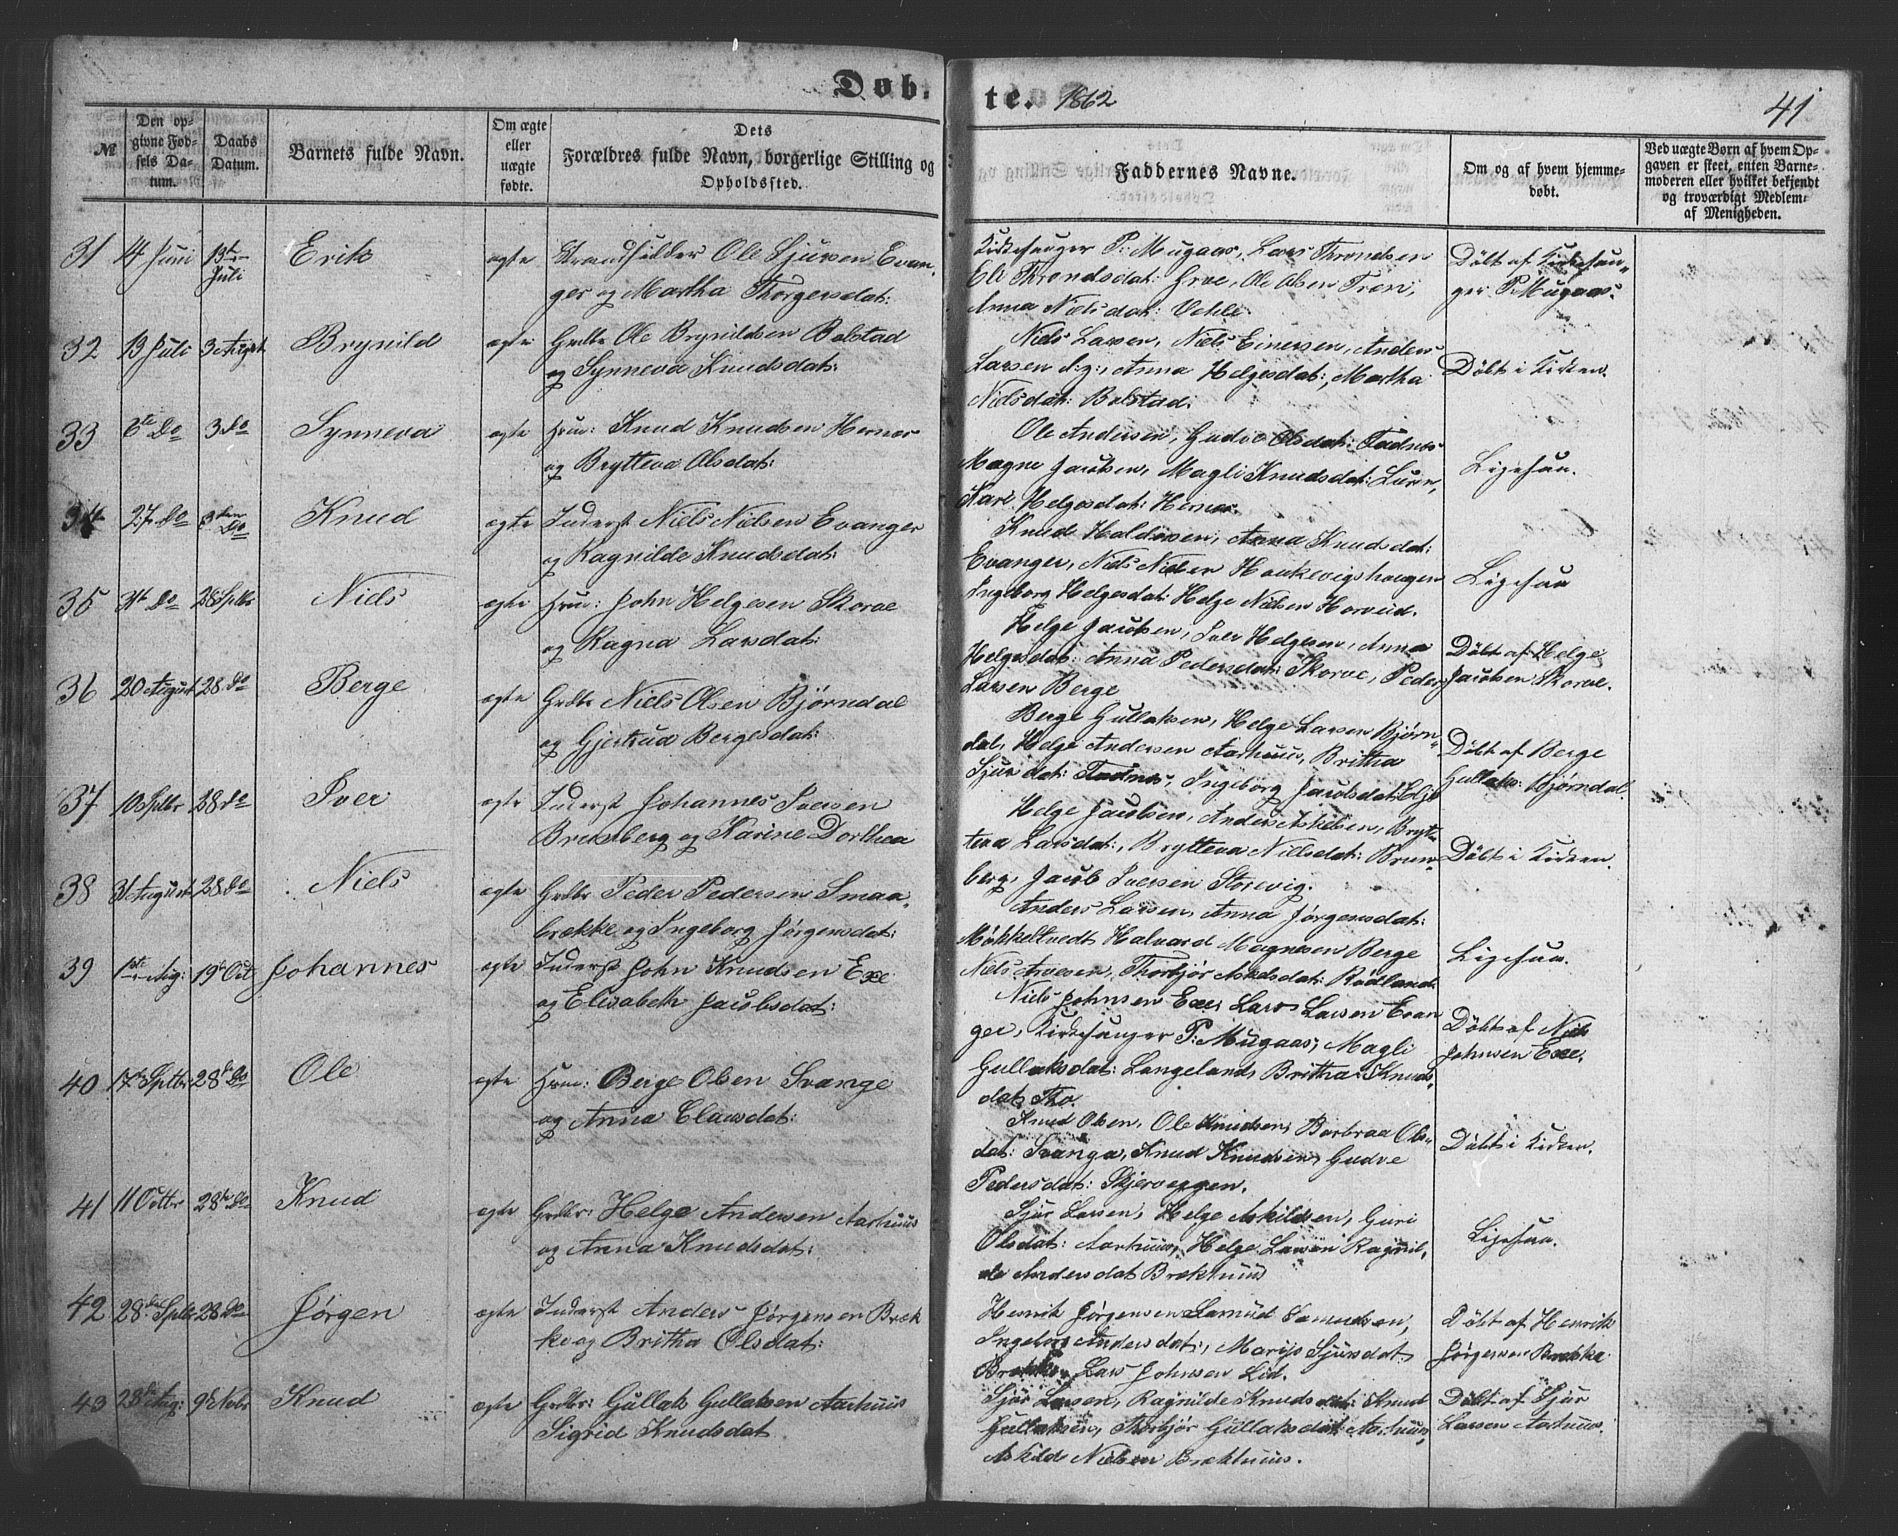 Døb-
te. 1862
41
№
Den op-
givne Fød-
sels Da-
tum.
Daabs
Datum.
Barnets fulde Navn.
Om ægte
eller
uægte
fødte.
Dets
Forældres fulde Navn, borgerlige Stilling og
Opholdssted.
Faddernes Navne.
Om og af hvem hjemme-
døbt.
Ved uægte Børn af hvem Op-
gaven er skeet, enten Barne-
moderen eller hvilket bekjendt
og troværdigt Medlem
af Menigheden.
31 4 Juni 13de Juli Erik ægte Strandsidder Ole Sjursen Evan-
ger og Martha Thorgersdat:
Kirkesanger P: Mugaas, Lars Throndsen
Eli Throndsdat: Grve, Ole Olsen Fren,
Anna Nielsdat:
Døbt af Kirkesan-
ger P. Mugaas.
32 13 Juli 3 August Brynild ægte Grdbr Ole Brynildsen Bolstad
og Synneva Knudsdat:
Niels Larsen, Niels Einersen, Anders
Larsen Anna Helgesdat:, Martha
Nielsdat: Bolstad.
Døbt i Kirken.
33 6te Do 3 Do Synneva ægte Hmd: Knud Knudsen Hernes
og Brytteva Olsdat:
Ole Andersen, Gudve Olsdat: Fadnes
Magne Jacobsen, Magli Knudsdat:
Kari Helgesdat: Hernes
Ligesaa.
34 27 Do 3 Do Knud ægte Inderst Niels Nielsen Evanger
og Ragnilde Knudsdat:
Knud Haldorsen, Anna Knudsdat:
Evanger, Niels Nielsen Haukevigshaugen
Ingeborg Helgesdat: Helge Nielsen Horveid.
Ligesaa
35 Do 28 Sptbr Niels ægte Hmd: John Helgesen Skorve
og Ragna Larsdat:
Helge Jacobsen, Iver Helgesen, Anna
Helgesdat: Anna Pedersdat: Skorve, Peder
Larsen Berge
Døbt af Helge
Jacobsen Skorve.
36 20 August 28 Do Berge ægte Grdbr Niels Olsen Bjørndal
og Gjertrud Bergesdat:
Berge Gullaksen, Helge Larsen Bjørn-
dal, Helge Andersen Aarhuus, Britha
Sjursdat: Fadnes, Ingeborg Jacobsdat:
Døbt af Berge
Gullaks: Bjørndal.
37 10 Sptbr 28 Do Iver ægte Inderst Johannes Iversen
Brekeberg og Karine Dorthea
Helge Jacobsen, Anders Askelsen, Bryt-
teva Larsdat:, Brytteva Nielsdat:
berg, Jacob Iversen Storevig.
Døbt i Kirken.
38 31 August 28 Do Niels ægte Grdbr Peder Pedersen Smaa-
brække og Ingeborg Jørgensdat:
Anders Larsen, Anna Jørgensdat:
Møkkeltvedt Halvard Magnesen Berge
Niels Arvesen, Thorbjør Askesdat: Rødland.
Ligesaa.
39 1ste Aug: 19de Oct Johannes ægte Inderst John Knudsen Exe
og Elisabeth Jacobsdat:
Niels Johnsen Exe, Lars Larsen Evan-
ger, Kirkesanger P: Mugaas, Magli
Gullaksdat: Langeland, Britha Knuds-
dat: Tho.
Døbt af Niels
Johnsen Exe.
40 17de Sptbr 28de Do Ole ægte Hmd: Berge Olsen Svange
og Anna Clausdat:
Knud Olsen, Ole Knudsen, Barbraa Ols-
dat: Svange, Knud Knudsen, Gudve
Pedersdat: Skjerveggen.
Døbt i Kirken.
41 11 Octbr 28de Do Knud ægte Grdbr: Helge Andersen Aarhuus
og Anna Knudsdat:
Sjur Larsen, Helge Askildsen, Guri
Olsdat: Aarhuus, Helge Larsen Ragnil-
de Andersdat Brækhuus
Ligesaa.
42 28de Sptbr 28 Do Jørgen ægte Inderst Anders Jørgensen Bræk-
ke og Britha Olsdat:
Henrik Jørgensen Samud Samudsen,
Ingeborg Andersdat:, Marijs Sjursdat:
Brække, Lars Johnsen Lid.
Døbt af Henrik
Jørgensen Brække
43 28de Aug: 9de Nobr Knud ægte Grdbr: Gullak Gullaksen Aarhuus
Sigrid Knudsdat
Sjur Larsen, Ragnilde Knudsdat: Knud
Gullaksen, Thorbjør Gullaksdat: Aarhuus,
Askild Nielsen Brækhuus.
Døbt af Sjur
Larsen Aarhuus.